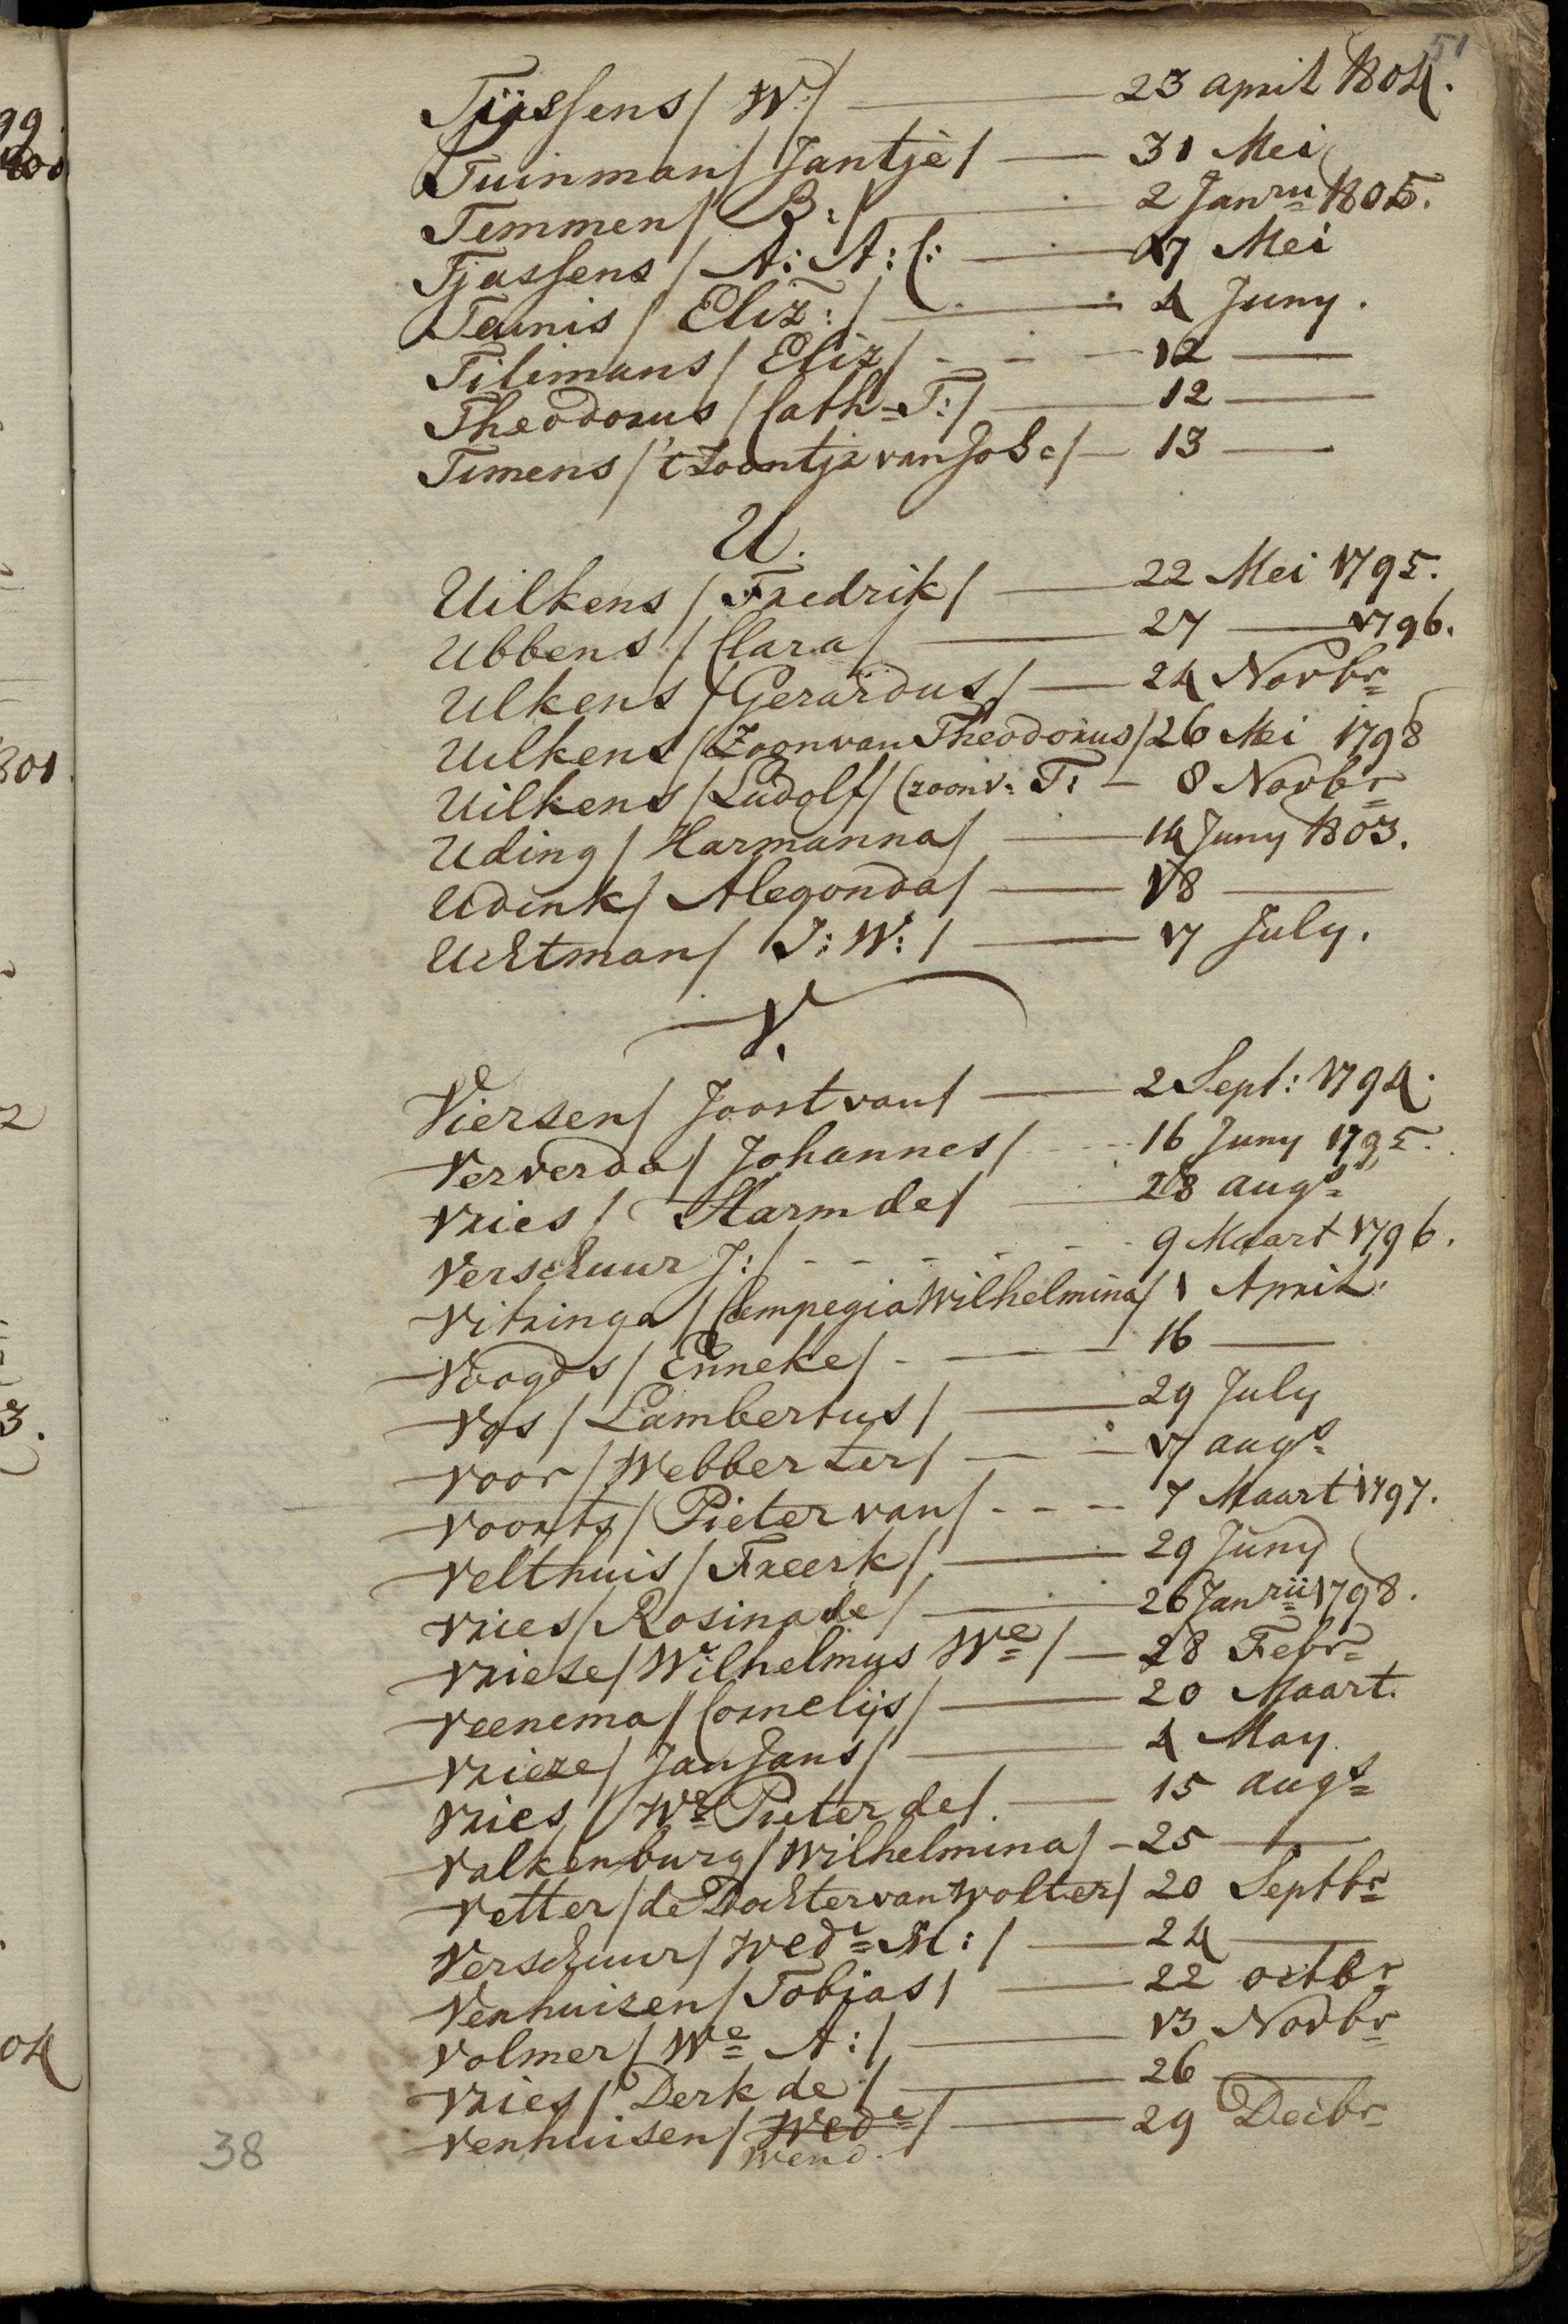 51
Tijssens / W: / 23 april 1804.
Tuinman / Jantje / 31 Mei
Temmen / B: / 2 Janru 1805.
Tjassens / A: A: C: 17 Mei
Teunis / Eliz: / 4 Juny.
Tilimans / Eliz / 12
Theodorus / Cath= T: / 12
Timens / 't Zoontje van Joh: / 13
U.
Uilkens / Fredrik / 22 Mei 1795.
Ubbens / Clara / 27 1796.
Ulkens / Gerardus / 24 Novbr
Uilkens / Zoon van Theodorus / 26 Mei 1798
Uilkens / Ludolf / (zoon v: T: 8 Novbr
Uding / Harmanna / 14 Juny 1803.
Udink / Alegonda / 18
Uchtman / J: W: / 17 July.
V.
Viersen / Joost van / 2 Sept: 1794.
Ververda / Johannes / 16 Juny 1795.
Vries / Harm de / 28 augs
Verschuur J: / 9 Maart 1796.
Vitringa / Compegia Wilhelmina / 1 April.
Voogds / Enneke / 16
Vos / Lambertus / 29 July
Voor / Webber ter / 17 augs
Voorts / Pieter van / 7 Maart 1797.
Velthuis / Freerk / 29 Juny
Vries / Rosina de / 26 Janrii 1798.
Vriese / Wilhelmus We / 28 Febr
Veenema / Cornelijs / 20 Maart.
Vrieze / Jan Jans / 4 May
Vries / We Pieter de / 15 augs
Valkenburg / Wilhelmina / 25
Vetter / de Dochter van Wolter / 20 Septbr
Verschuur / Wede M: / 24
Venhuizen / Tobias / 22 octbr
Volmer / We A: / 13 Novbr
Vries / Derk de / 26
Venhuisen / Wede / 29 Decbr
Wend.
38